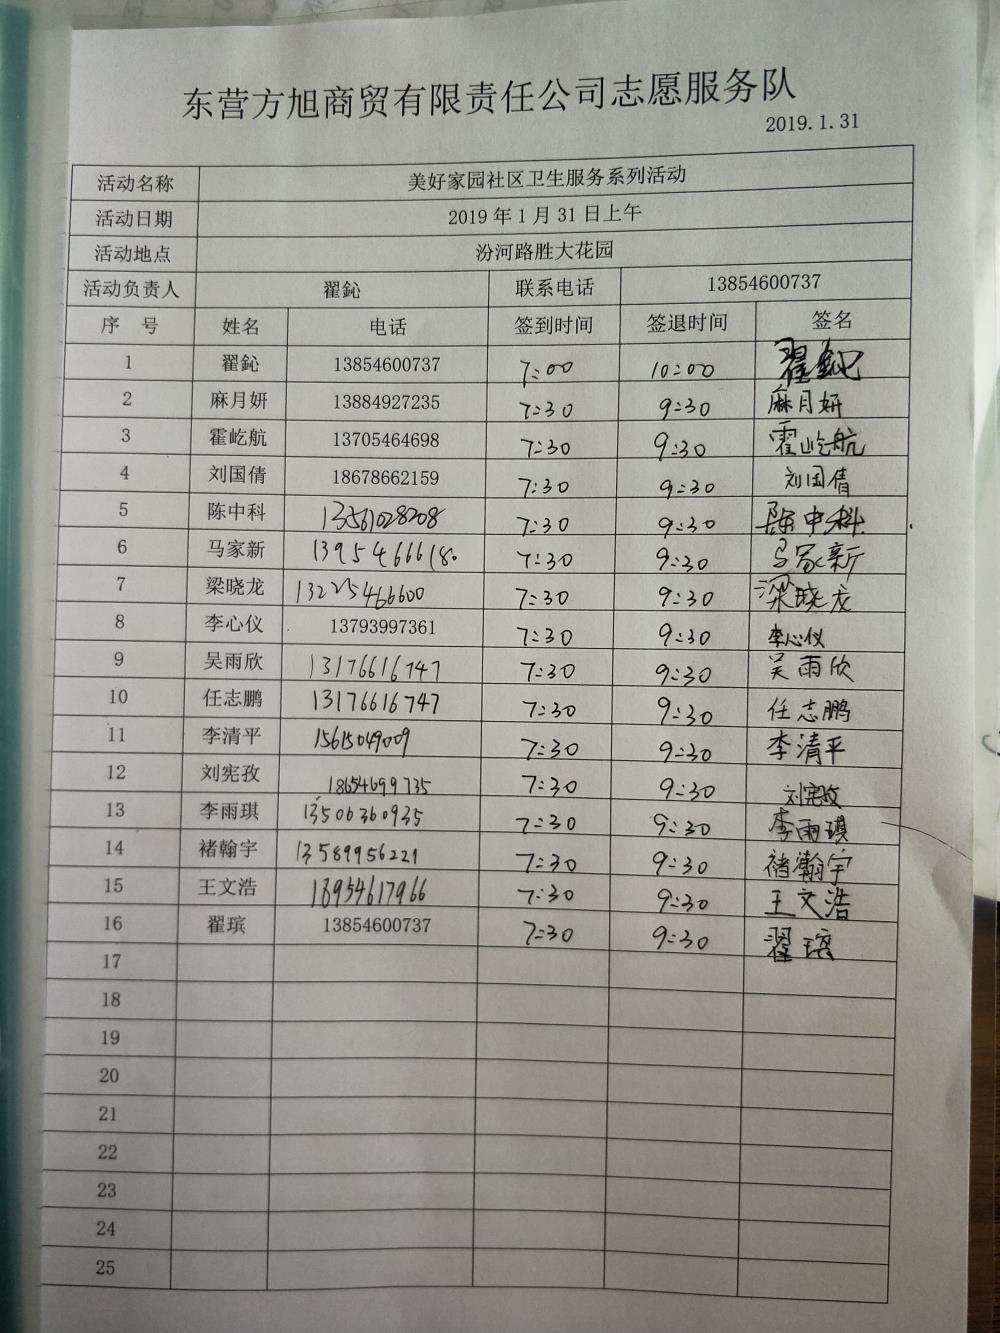 东营方旭商贸有限责任公司志愿服务队
2019.1.31
活动名称 美好家园社区卫生服务系列活动
活动日期 2019年1月31日上午
活动地点 汾河路胜大花园
活动负责人 翟鈊 联系电话 13854600737
序 号 姓名 电话 签到时间 签退时间 签名
1 翟鈊 13854600737 7:00 10:00 翟鈊
2 麻月妍 13884927235 7:30 9:30 麻月妍
3 霍屹航 13705464698 7:30 9:30 霍屹航
4 刘国倩 18678662159 7:30 9:30 刘国倩
5 陈中科 13561028208 7:30 9:30 陈中科
6 马家新 13954666180 7:30 9:30 马家新
7 梁晓龙 13225466600 7:30 9:30 梁晓龙
8 李心仪 13793997361 7:30 9:30 李心仪
9 吴雨欣 13176616747 7:30 9:30 吴雨欣
10 任志鹏 13176616747 7:30 9:30 任志鹏
11 李清平 15615049009 7:30 9:30 李清平
12 刘宪孜 18654699735 7:30 9:30 刘宪孜
13 李雨琪 13506360935 7:30 9:30 李雨琪
14 褚翰宇 13589956221 7:30 9:30 褚翰宇
15 王文浩 18954617966 7:30 9:30 王文浩
16 翟瑸 13854600737 7:30 9:30 翟瑸
17
18
19
20
21
22
23
24
25